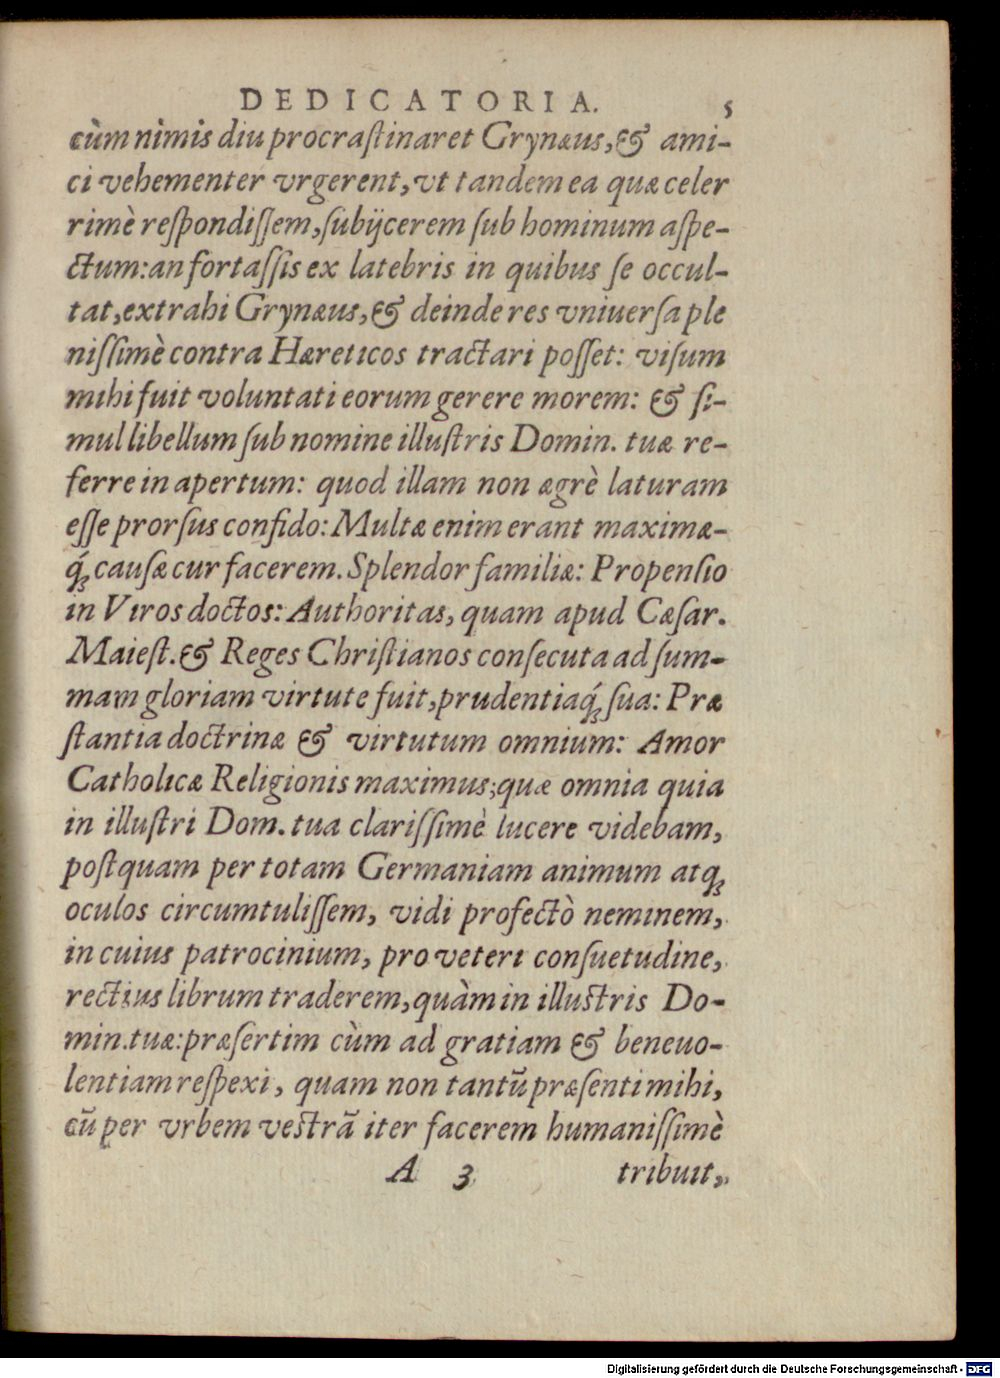 DEDICATORIA. 5
cùm nimis diu procraſtinaret Grynæus, & ami-
ci vehementer vrgerent, vt tandem ea quæ celer
rimè reſpondiſſem, ſubijcerem ſub hominum aſpe-
ctum: an fortaſſis ex latebris in quibus ſe occul-
tat, extrahi Grynæus, & deinde res vniuerſa ple
niſſimè contra Hæreticos tractari poſſet: viſum
mihi fuit voluntati eorum gerere morem: & ſi-
mul libellum ſub nomine illuſtris Domin. tuæ re-
ferre in apertum: quod illam non ægrè laturam
eſſe prorſus confido: Multæ enim erant maximæ-
q́; cauſæ cur facerem. Splendor familiæ: Propenſio
in Viros doctos: Authoritas, quam apud Cæſar.
Maieſt. & Reges Chriſtianos conſecuta ad ſum-
mam gloriam virtute fuit, prudentiaq́; ſua: Præ
ſtantia doctrinæ & virtutum omnium: Amor
Catholicæ Religionis maximus; quæ omnia quia
in illuſtri Dom. tua clariſſimè lucere videbam,
poſtquam per totam Germaniam animum atq;
oculos circumtuliſſem, vidi profectò neminem,
in cuius patrocinium, pro veteri conſuetudine,
rectius librum traderem, quàm in illuſtris Do-
min. tuæ: præſertim cùm ad gratiam & beneuo-
lentiam reſpexi, quam non tantũ præſenti mihi,
cũ per vrbem veſtrã iter facerem humaniſſimè
A 3 tribuit,
Digitalisierung gefördert durch die Deutsche Forschungsgemeinschaft - DFG